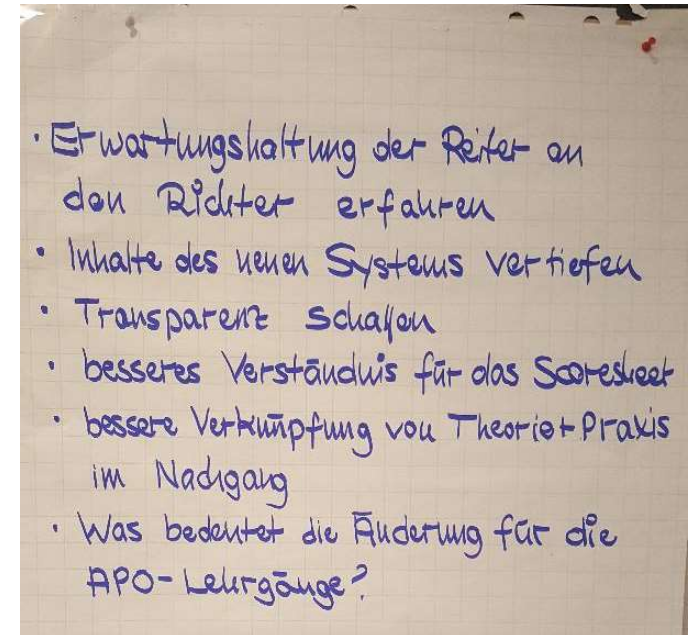 · Erwartungshaltung der Reiter an
den Richter erfahren
· Inhalte des neuen Systems vertiefen
· Transparenz schaffen
· besseres Verständnis für das Scoresheet
· bessere Verknüpfung von Theorie + Praxis
im Nachgang
· Was bedeutet die Änderung für die
APO-Lehrgänge?